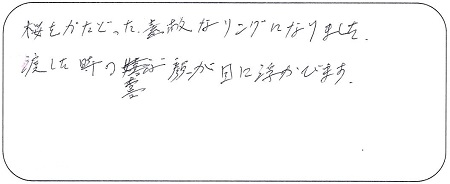 桜をかたどった、素敵なリングになりました。
渡した時の喜ぶ顔が目に浮かびます。